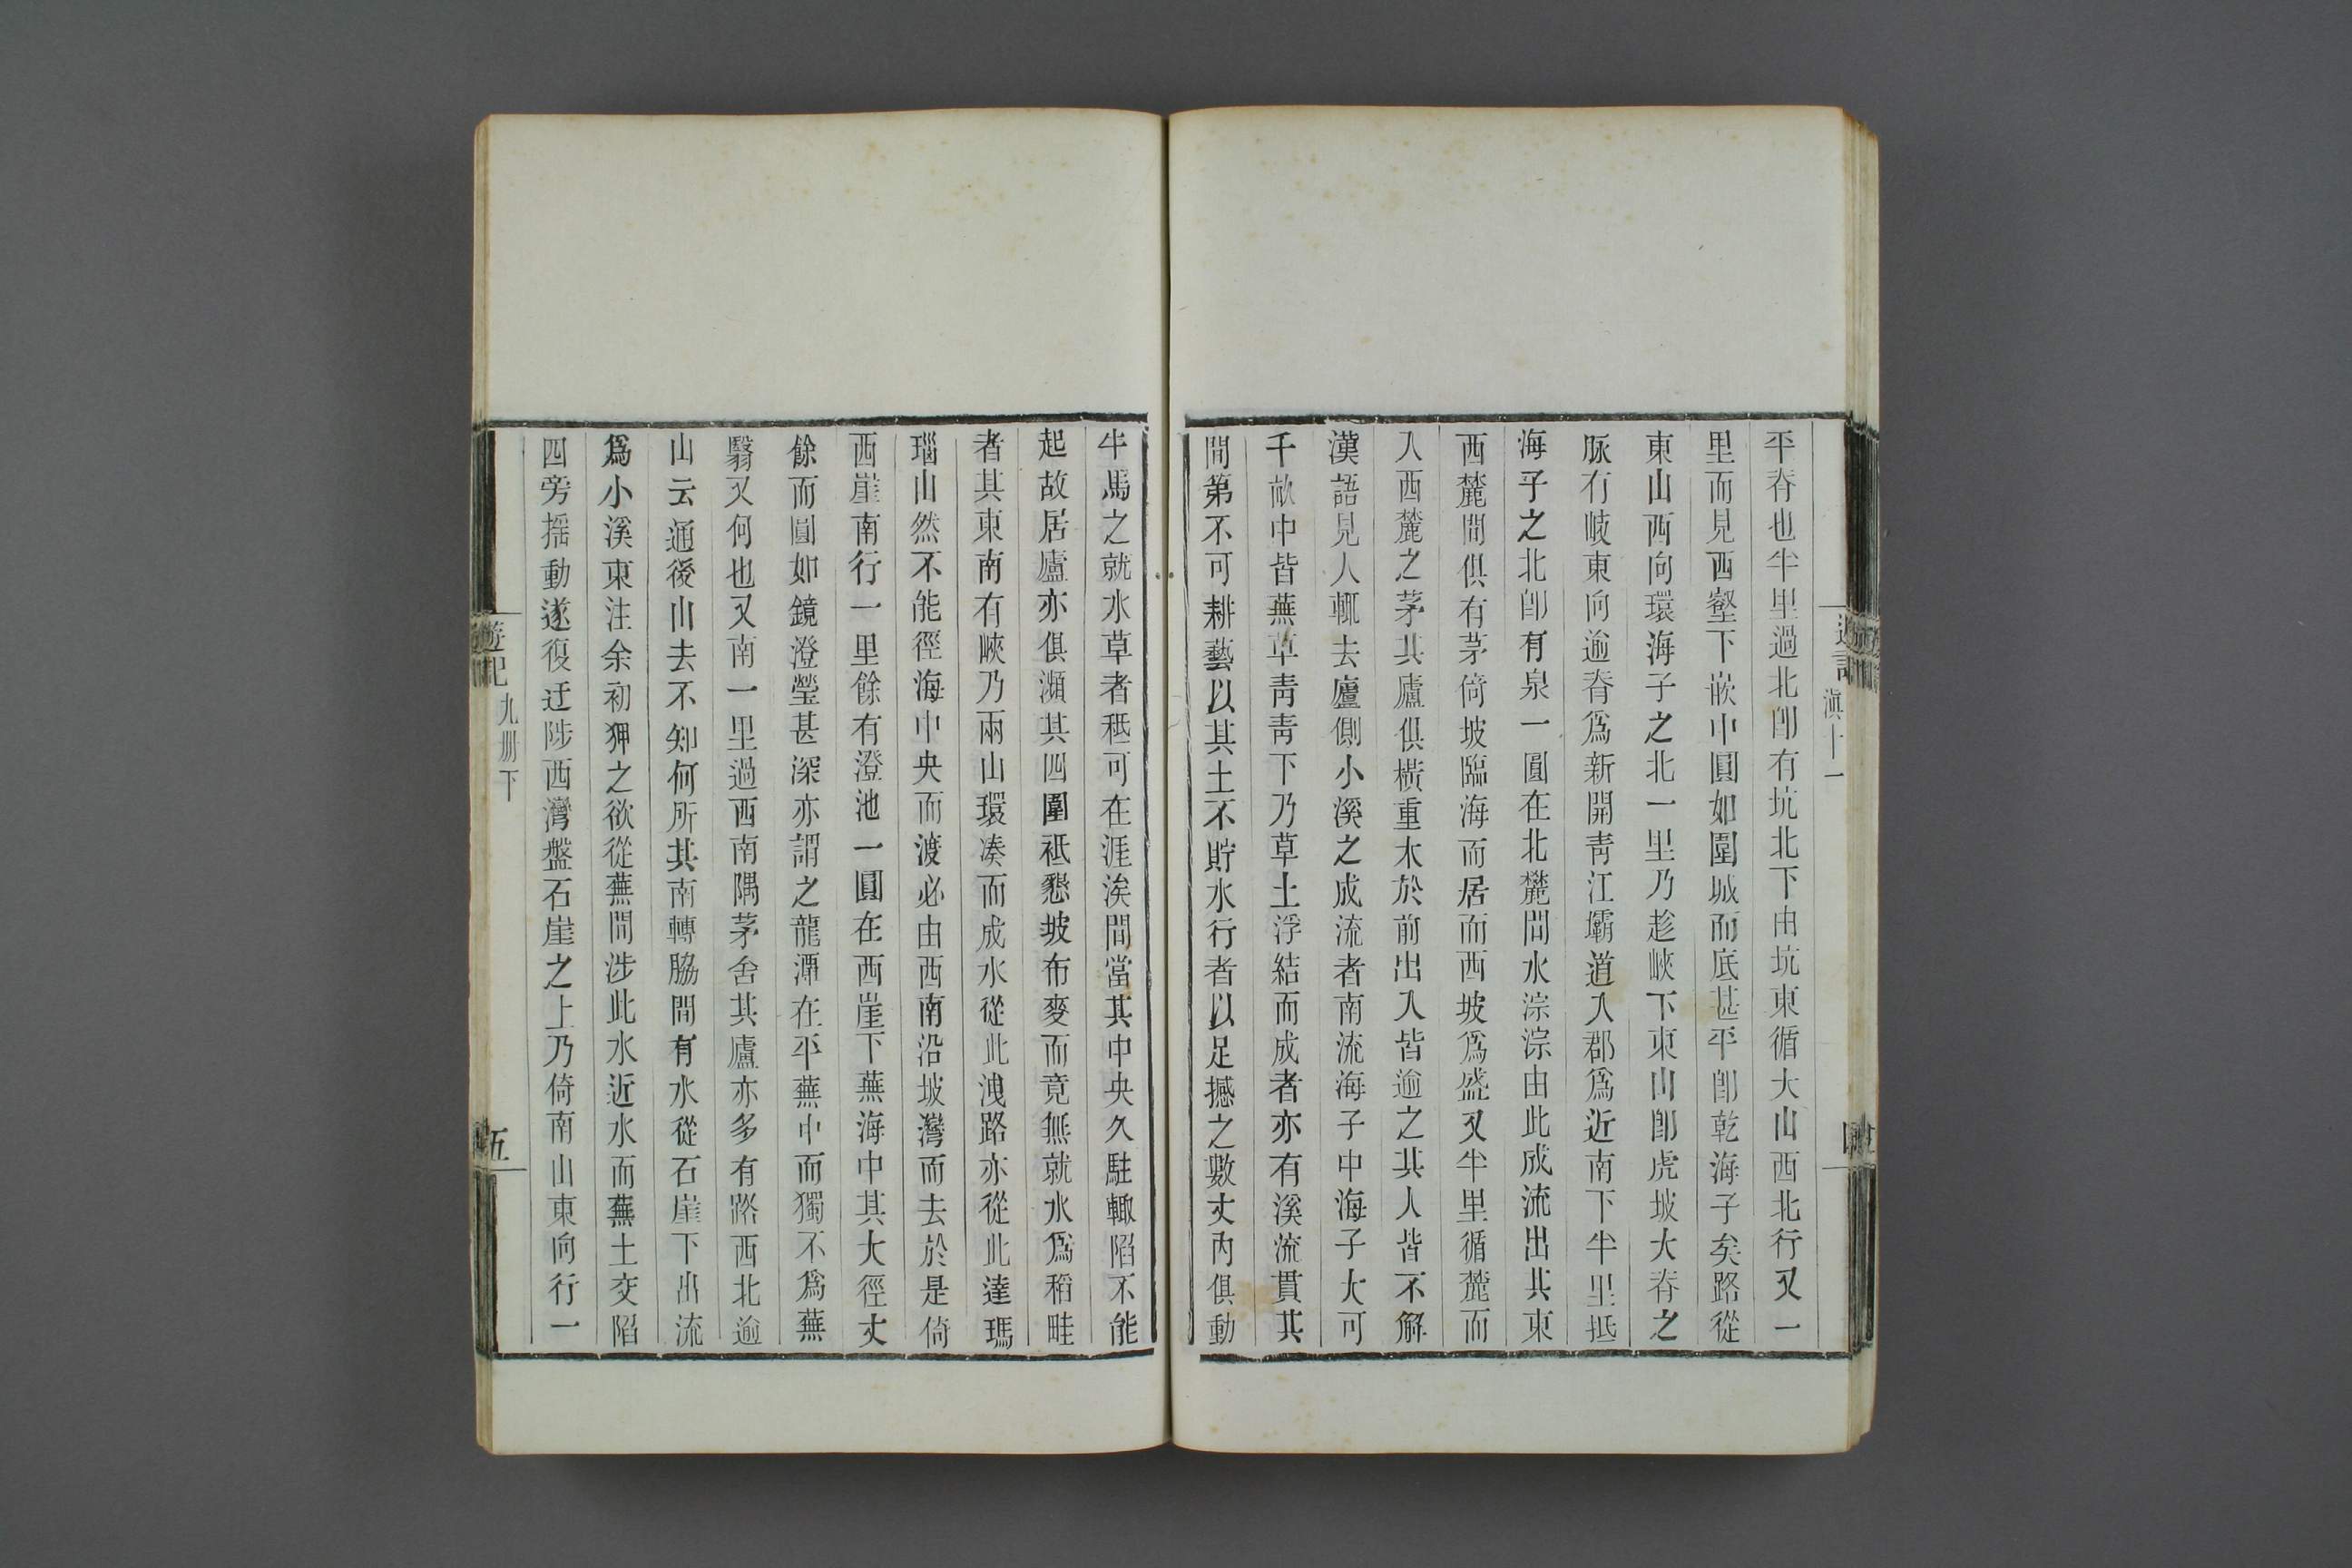 平脊也半里過北卽有坑北下由坑東循大山西北行又一
里而見西壑下嵌中圓如圍城而底甚平卽乾海子矣路從
東山西向環海子之北一里乃趁峽下東山卽虎坡大脊之
脉有岐東向逾脊爲新開青江壩道入郡爲近南下半里抵
海子之北卽有泉一圓在北麓間水淙淙由此成流出其東
西麓間俱有茅倚坡臨海而居而西坡爲盛又半里循麓而
入西麓之茅其廬俱橫重木於前出入皆逾之其人皆不解
漢語見人輒去廬側小溪之成流者南流海子中海子大可
千畝中皆蕪草青青下乃草土浮結而成者亦有溪流貫其
間第不可耕藝以其土不貯水行者以足撼之數丈內俱動
牛馬之就水草者秪可在涯涘間當其中央久駐輙陷不能
起故居廬亦俱瀕其四圍祗懇坡布麥而竟無就水爲稻畦
者其東南有峽乃兩山環凑而成水從此洩路亦從此達瑪
瑙山然不能徑海中央而渡必由西南沿坡灣而去於是倚
西崖南行一里餘有澄池一圓在西崖下蕪海中其大徑丈
餘而圓如鏡澄瑩甚深亦謂之龍潭在平蕪中而獨不爲蕪
翳又何也又南一里過西南隅茅舍其廬亦多有路西北逾
山云通後山去不知何所其南轉脇間有水從石崖下出流
爲小溪東注余初狎之欲從蕪間涉此水近水而蕪土交陷
四旁揺動遂復迂陟西灣盤石崖之上乃倚南山東向行一
遊記 九册下
五
滇十一